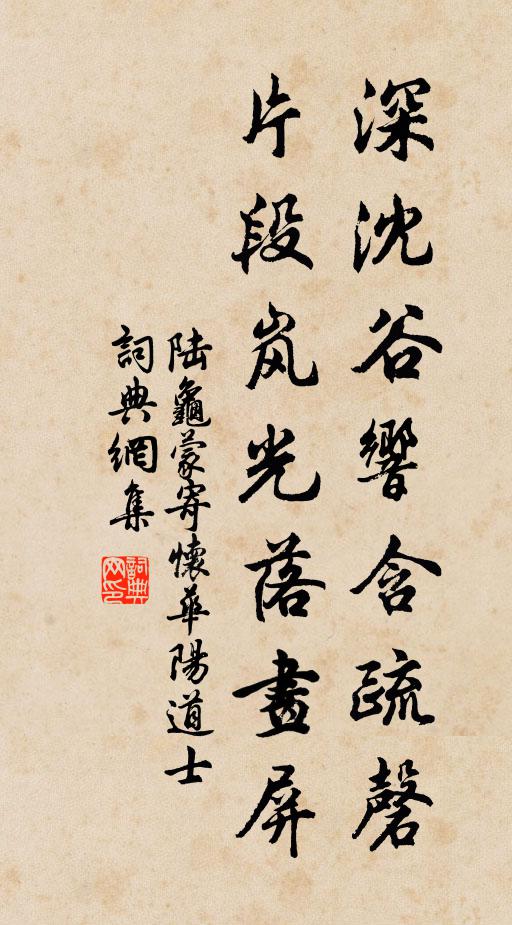 深沈谷響含疏磬
片段岚光落畫屏
陆龜蒙寄懷華陽道士
詞典網集
詞典网印